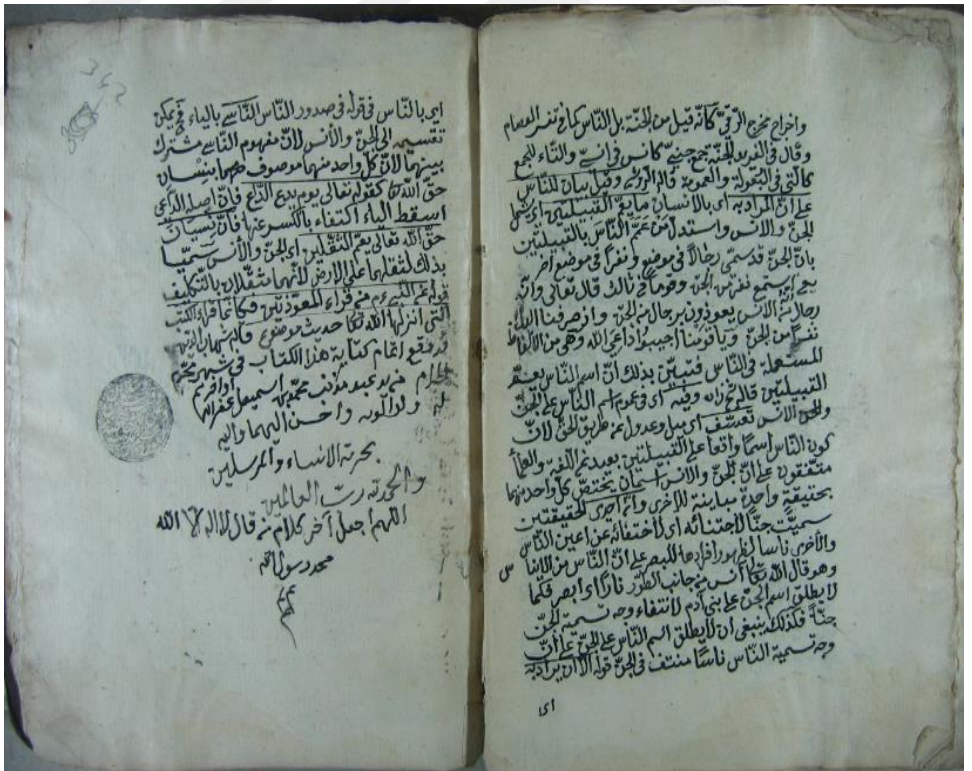 واخراج مخرج الرقى كانه قيل من الجنة بل الناس كما في تفسير العصام
وقال في الفريد الجنة جمع جني كانس في انسي والتاء للجمع
كالتي في البعولة والعمومة قاله وقيل بيان للناس
على ان المراد به اى بالانسان ما يعم القبيلتين اى يشمل
الجن والانس واستدل من عمم الناس بالقبيلتين
بان الجن قد سمى رجالا في موضع ونفرا في موضع آخر
اى استمع نفر من الجن وقوما في ثالث قال تعالى وانه
رجال من الانس يعوذون برجال من الجن واذ صرفنا اليك
نفرا من الجن ويا قومنا اجيبوا داعى الله وهى من الالفاظ
المستعملة في الناس فتبين بذلك ان اسم الناس يعم
القبيلتين قاله وفيه اى في عموم اسم الناس على الجن
والانس تعسف اى ميل وعدول عن طريق الحق لان
كون الناس اسما واقعا على القبيلتين بعيد عن اللغة والعلماء
متفقون على ان الجن والانس اسمان يختص كل واحد منهما
بحقيقة واحدة مباينة للاخرى وان احدى الحقيقتين
سميت جنا لاجتنانه اى لاختفائه عن اعين الناس
والاخرى ناسا لظهور افرادها للبصر على ان الناس من الايناس
وهو قال الله تعالى آنس من جانب الطور نارا اى ابصر فكما
لا يطلق اسم الجن على بنى آدم لانتفاء وجه تسمية الجن
جنا فكذلك ينبغى ان لا يطلق اسم الناس على الجن على ان
وجه تسمية الناس ناسا منتف في الجن قوله الا ان يراد به
اى
اى بالناس في قوله في صدور الناس الناسى بالياء فيمكن
تقسيمه الى الجن والانس لان مفهوم الناسى مشترك
بينهما لان كل واحد منهما موصوف بنسيان
حق الله كقوله تعالى يوم يدع الداع فان اصله الداعى
اسقط الياء اكتفاء بالكسر عنها فان نسيان
حق الله تعالى يعم الثقلين اى الجن والانس سميا
بذلك لثقلهما على الارض لانهما مثقلان بالتكليف
قوله عن النبى من قراء المعوذتين فكانما قراء الكتب
التى انزلها الله حديث موضوع قاله شهاب الدين
قد وقع اتمام كتابة هذا الكتاب في شهر محرم
الحرام من يد عبد مذنب محمد بن اسمعيل غفر الله
له ولوالديه واحسن اليهما واليه
بحرمة الانبياء والمرسلين
والحمد لله رب العالمين
اللهم اجعل آخر كلام من قال لا اله الا الله
محمد رسول الله